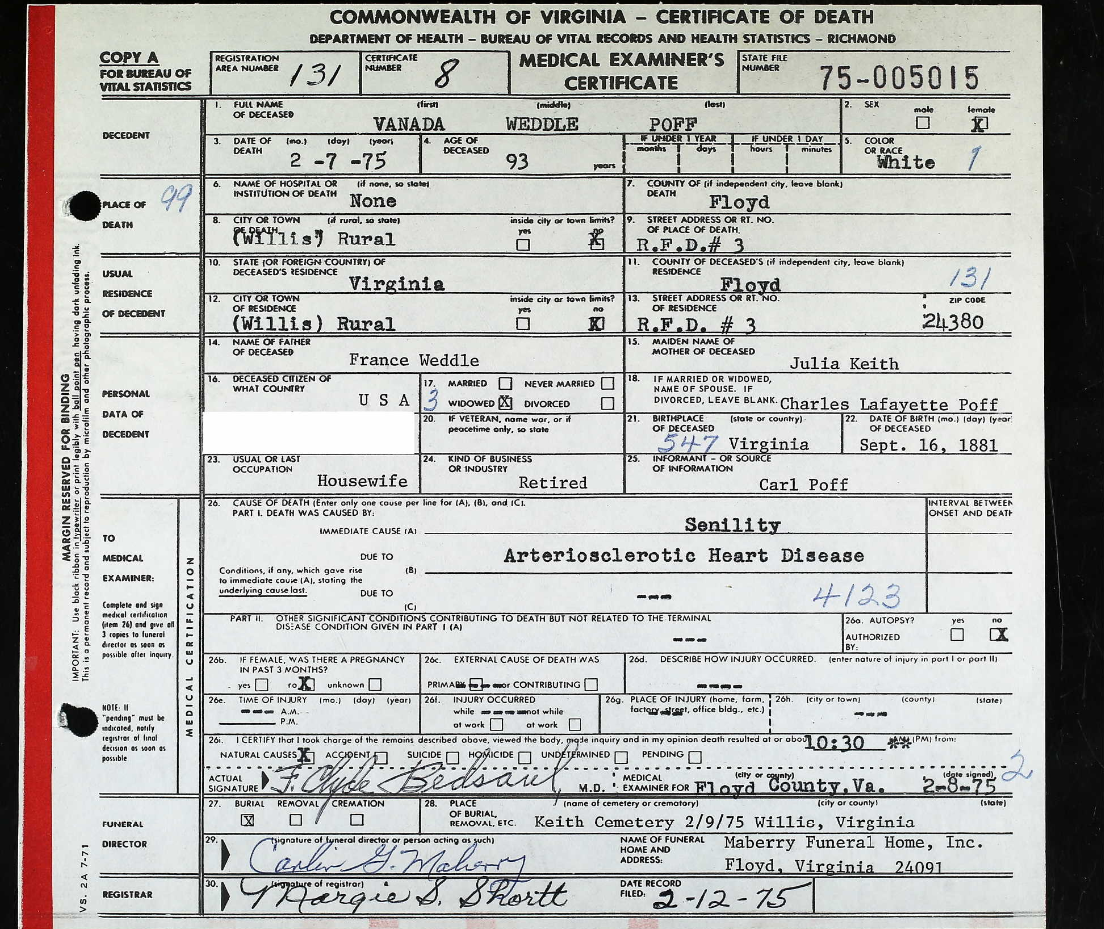 COMMONWEALTH OF VIRGINIA – CERTIFICATE OF DEATH
DEPARTMENT OF HEALTH – BUREAU OF VITAL RECORDS AND HEALTH STATISTICS – RICHMOND
COPY A
FOR BUREAU OF VITAL STATISTICS
REGISTRATION AREA NUMBER 131
CERTIFICATE NUMBER 8
MEDICAL EXAMINER'S CERTIFICATE
STATE FILE NUMBER 75-005015
DECEDENT
1. FULL NAME OF DECEASED (first) (middle) (last)
VANADA WEDDLE POFF
2. SEX male female X
3. DATE OF DEATH (mo.) (day) (year)
2 -7 -75
4. AGE OF DECEASED 93 years
IF UNDER 1 YEAR months days
IF UNDER 1 DAY hours minutes
5. COLOR OR RACE
White 1
PLACE OF DEATH 99
6. NAME OF HOSPITAL OR INSTITUTION OF DEATH (if none, so state)
None
7. COUNTY OF DEATH (if independent city, leave blank)
Floyd
8. CITY OR TOWN OF DEATH (if rural, so state) inside city or town limits? yes no X
(Willis) Rural
9. STREET ADDRESS OR RT. NO. OF PLACE OF DEATH.
R.F.D.# 3
USUAL RESIDENCE OF DECEDENT
10. STATE (OR FOREIGN COUNTRY) OF DECEASED'S RESIDENCE
Virginia
11. COUNTY OF DECEASED'S RESIDENCE (if independent city, leave blank)
Floyd 131
12. CITY OR TOWN OF RESIDENCE inside city or town limits? yes no X
(Willis) Rural
13. STREET ADDRESS OR RT. NO. OF RESIDENCE ZIP CODE
R.F.D. # 3 24380
PERSONAL DATA OF DECEDENT
14. NAME OF FATHER OF DECEASED
France Weddle
15. MAIDEN NAME OF MOTHER OF DECEASED
Julia Keith
16. DECEASED CITIZEN OF WHAT COUNTRY
U S A
17. MARRIED NEVER MARRIED
3 WIDOWED X DIVORCED
18. IF MARRIED OR WIDOWED, NAME OF SPOUSE. IF DIVORCED, LEAVE BLANK.
Charles Lafayette Poff
20. IF VETERAN, name war, or if peacetime only, so state
21. BIRTHPLACE OF DECEASED (state or country)
547 Virginia
22. DATE OF BIRTH OF DECEASED (mo.) (day) (year
Sept. 16, 1881
23. USUAL OR LAST OCCUPATION
Housewife
24. KIND OF BUSINESS OR INDUSTRY
Retired
25. INFORMANT – OR SOURCE OF INFORMATION
Carl Poff
TO MEDICAL EXAMINER:
Complete and sign medical certification (item 26) and give all 3 copies to funeral director as soon as possible after inquiry.
NOTE: If "pending" must be indicated, notify registrar of final decision as soon as possible
MEDICAL CERTIFICATION
26. CAUSE OF DEATH (Enter only one cause per line for (A), (B), and (C).
PART I. DEATH WAS CAUSED BY:
INTERVAL BETWEEN ONSET AND DEATH
IMMEDIATE CAUSE (A) Senility
DUE TO (B) Arteriosclerotic Heart Disease
Conditions, if any, which gave rise to immediate cause (A), stating the underlying cause last.
DUE TO (C) ---
4123
PART II. OTHER SIGNIFICANT CONDITIONS CONTRIBUTING TO DEATH BUT NOT RELATED TO THE TERMINAL DISEASE CONDITION GIVEN IN PART I (A)
---
26a. AUTOPSY? yes no X
AUTHORIZED BY:
26b. IF FEMALE, WAS THERE A PREGNANCY IN PAST 3 MONTHS?
yes no X unknown
26c. EXTERNAL CAUSE OF DEATH WAS
PRIMARY --- or CONTRIBUTING
26d. DESCRIBE HOW INJURY OCCURRED. (enter nature of injury in part I or part II)
----
26e. TIME OF INJURY (mo.) (day) (year)
--- A.M.
P.M.
26f. INJURY OCCURRED
while at work --- not while at work
26g. PLACE OF INJURY (home, farm, factory, street, office bldg., etc.)
---
26h. (city or town) (county) (state)
---
26i. I CERTIFY that I took charge of the remains described above, viewed the body, made inquiry and in my opinion death resulted at or about 10:30 ** (PM) from:
NATURAL CAUSES X ACCIDENT SUICIDE HOMICIDE UNDETERMINED PENDING
ACTUAL SIGNATURE F. Clyde Bedsaul M.D.
MEDICAL EXAMINER FOR (city or county) Floyd County.Va.
(date signed) 2-8-75 2
FUNERAL DIRECTOR
27. BURIAL REMOVAL CREMATION
X
28. PLACE OF BURIAL, REMOVAL, ETC. (name of cemetery or crematory) (city or county) (state)
Keith Cemetery 2/9/75 Willis, Virginia
29. (signature of funeral director or person acting as such)
Carlin G. Maberry
NAME OF FUNERAL HOME AND ADDRESS:
Maberry Funeral Home, Inc.
Floyd, Virginia 24091
REGISTRAR
30. (signature of registrar)
Margie S. Shortt
DATE RECORD FILED: 2-12-75
MARGIN RESERVED FOR BINDING
IMPORTANT: Use black ribbon in typewriter or print legibly with ball point pen having dark unfading ink.
This is a permanent record and subject to reproduction by microfilm and other photographic process.
VS. 2A 7-71